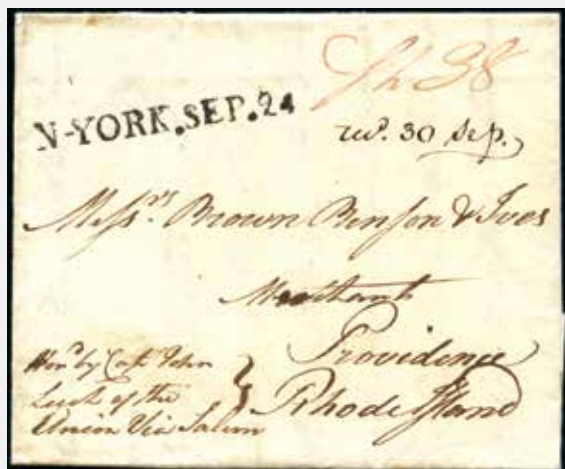 Sh 38
N-YORK.SEP.24
recd. 30 Sep.
Messrs. Brown Benson & Ives
Merchants
Providence
Rhode Island
Hond by Capt John
of the
Union Via Salem